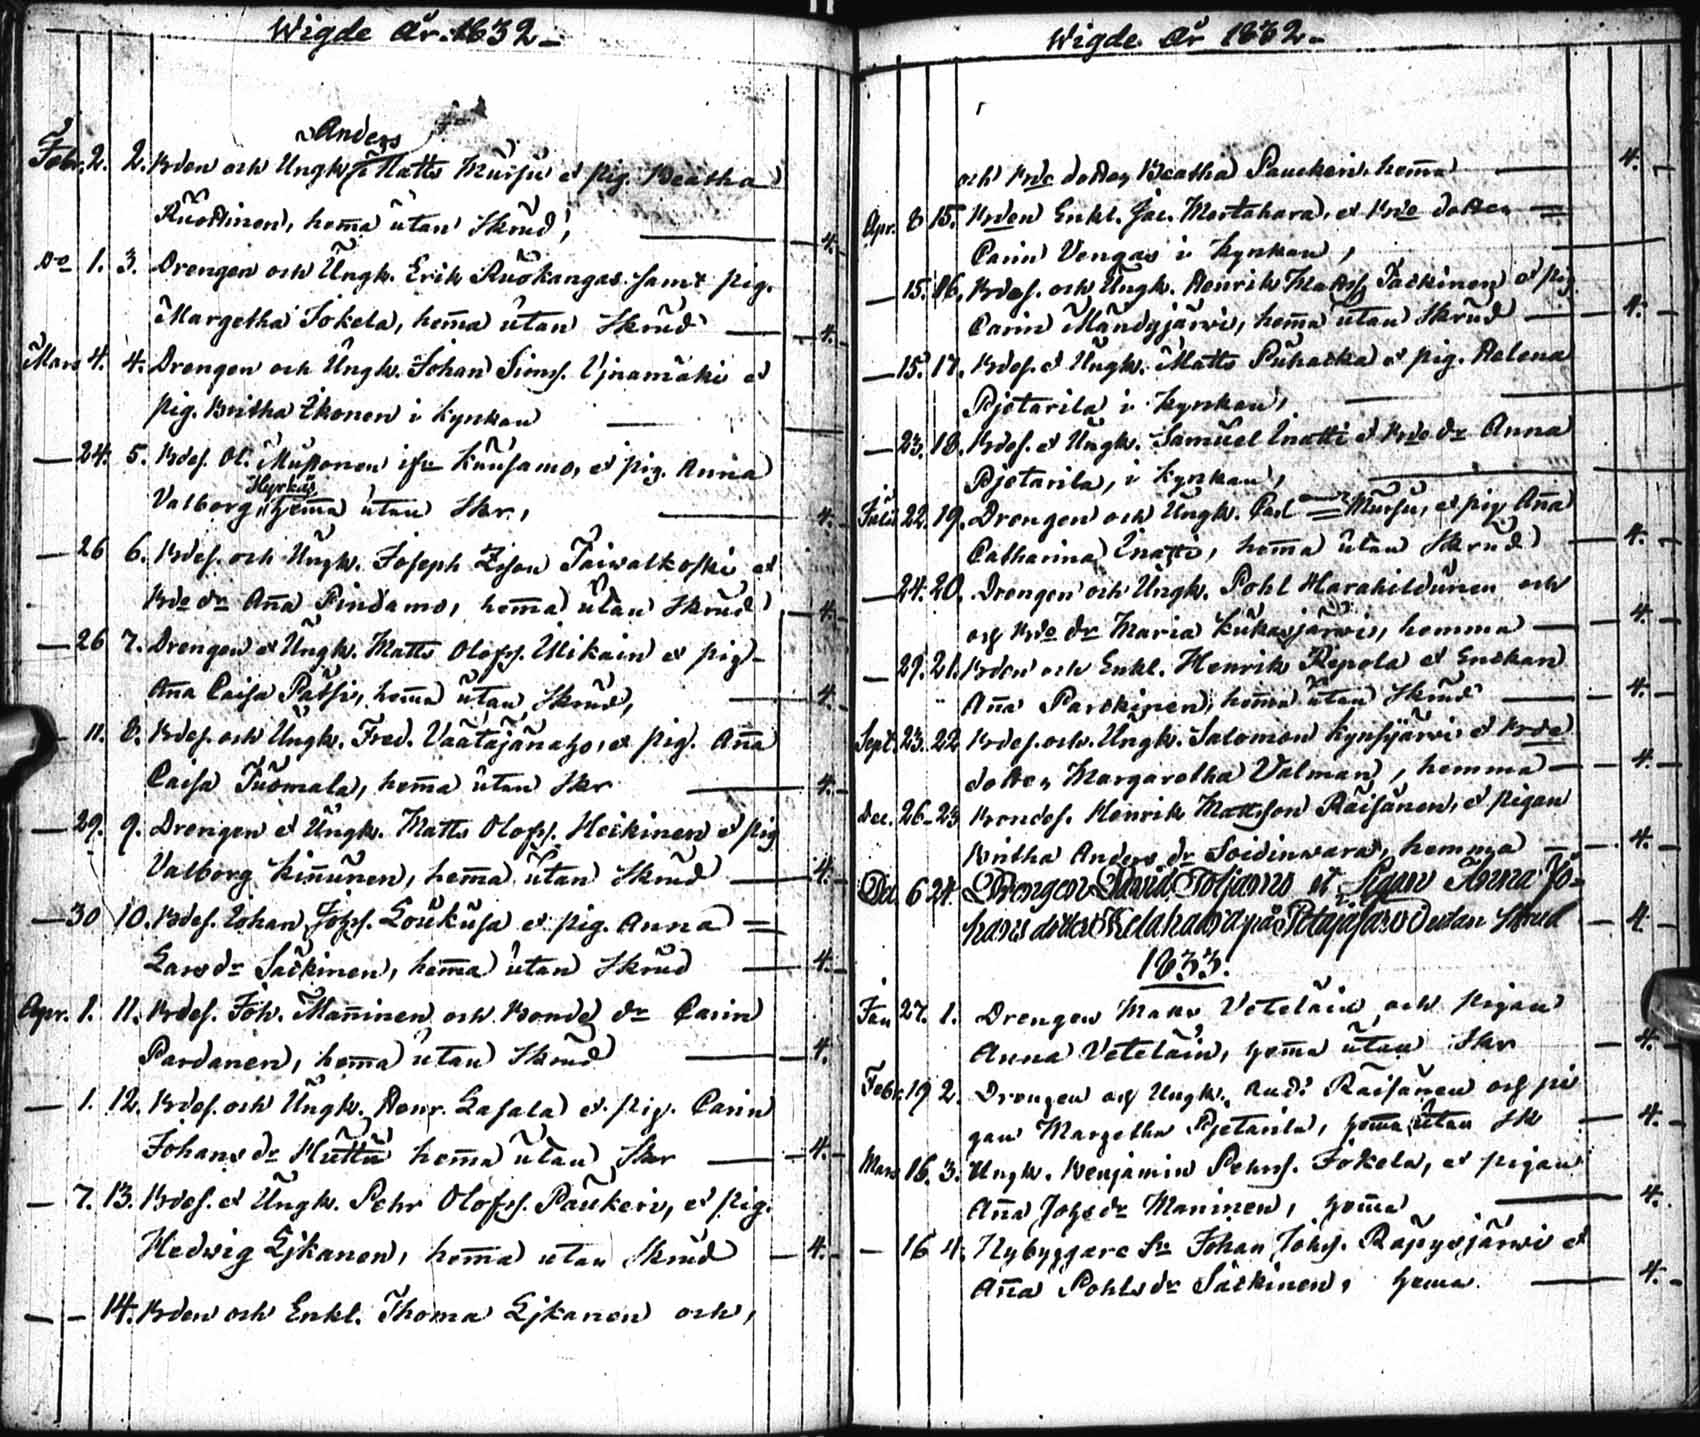 Wigde År 1832 –
Anders
Febr. 2. 2. Bden och Ungk. Matts Mursu et pig. Beatha
Ruottinen, hem̄a utan Skrud, — 4. –
Do 1. 3. Drengen och Ungk. Erik Ruokangas samt pig.
Margetha Jokela, hem̄a utan Skrud — 4. –
Mars 4. 4. Drengen och Ungk. Johan Simss. Ijnamäki et
pig. Britha Ikonen i kyrkan —
— 24. 5. Bdes. Ol. Mustonen ifr. Kuusamo, et pig. Anna
Hyrkäs
Valborg hem̄a utan Skr., — 4. –
— 26 6. Bdes. och Ungk. Joseph Taiwalkoski et
Bde dr Aña Pindamo, hem̄a utan Skrud — 4. –
— 26 7. Drengen et Ungk. Matts Olofss. Ulikain et pig
Aña Caisa Pätsi, hem̄a utan Skrud, — 4. –
— 11. 8. Bdes. och Ungk. Fred. Väätäjänaho, et pig. Aña
Caisa Tuomala, hem̄a utan Skr — 4. –
— 29. 9. Drengen et Ungk. Matts Olofss. Heikinen et pig
Valborg Kiñunen, hem̄a utan Skrud — 4. –
— 30 10. Bdes. Johan Johss. Loukusa et pig. Anna =
Lars dr Säckinen, hem̄a utan Skrud — 4. –
Apr. 1. 11. Bdes. Joh. Mañinen och Bonde dr Carin
Pardanen, hem̄a utan Skrud — 4. –
— 1. 12. Bdes. och Ungk. Henr. Lasala et pig. Carin
Johans dr Huttu hem̄a utan Skr — 4. –
— 7. 13. Bdes. et Ungk. Pehr Olofss. Paukeri, et pig.
Hedwig Lijkanen, hem̄a utan Skrud — 4. –
— – 14. Bden och Enkl. Thoma Lijkanen och,
Wigde År 1832 –
och Bde dotter Beatha Pauckeri, hem̄a — 4. –
Apr. 8 15. Bden Enkl. Jac. Mortahara, et Bde dotter =
Carin Vengas i kyrkan, —
— 15. 16. Bdes. och Ungk. Henrik Matss Säckinen et pig
Carin Mändyjärwi, hem̄a utan Skrud — 4. –
— 15. 17. Bdes. et Ungk. Matts Puhacka et pig. Helena
Pjetarila i kyrkan, —
— 23. 18. Bdes. et Ungk. Samuel Inatti et Bde dr Anna
Pjetarila, i kyrkan, —
Julii 22. 19. Drengen och Ungk. Carl = Mursu, et pig Aña
Catharina Inatti, hem̄a utan Skrud — 4. –
— 24. 20. Drengen och Ungk. Pohl Harahildunen och
och Bde dr Maria Kukasjärwi, hemma — 4. –
— 29. 21. Bden och Enkl. Henrik Repola et Enckan
Aña Parckinen, hem̄a utan Skrud — 4. –
Sept. 23. 22 Bdes. och Ungk. Salomon Kynsijärwi et Bde
dotter Margaretha Valman, hemma — 4. –
Dec. 26 – 23 Bondes. Henrik Mattsson Räisänen, et pigan
Britha Anders dr Soidinwara, hemma — 4. –
Dec 6 24. Drengen David Toljamo et Pigan Anna Jo=
hans dotter Kelahaara på Potajärwi utan Skrud – 4
1833.
Jan 27. 1. Drengen Matts Veteläin och pigan
Anna Veteläin, hem̄a utan Skr — 4. –
Febr. 19 2. Drengen och Ungk. And. Räisänen och pi
gan Margetha Pjetarila, hem̄a utan Sk — 4. –
Mars 16. 3. Ungk. Benjamin Pehrss. Jokela, et pigan
Aña Johs dr Maninen, hem̄a — 4. –
— 16 4. Nybyggare Sn Johan Johss. Räpysjärwi et
Aña Pohls dr Säckinen, hema — 4. –